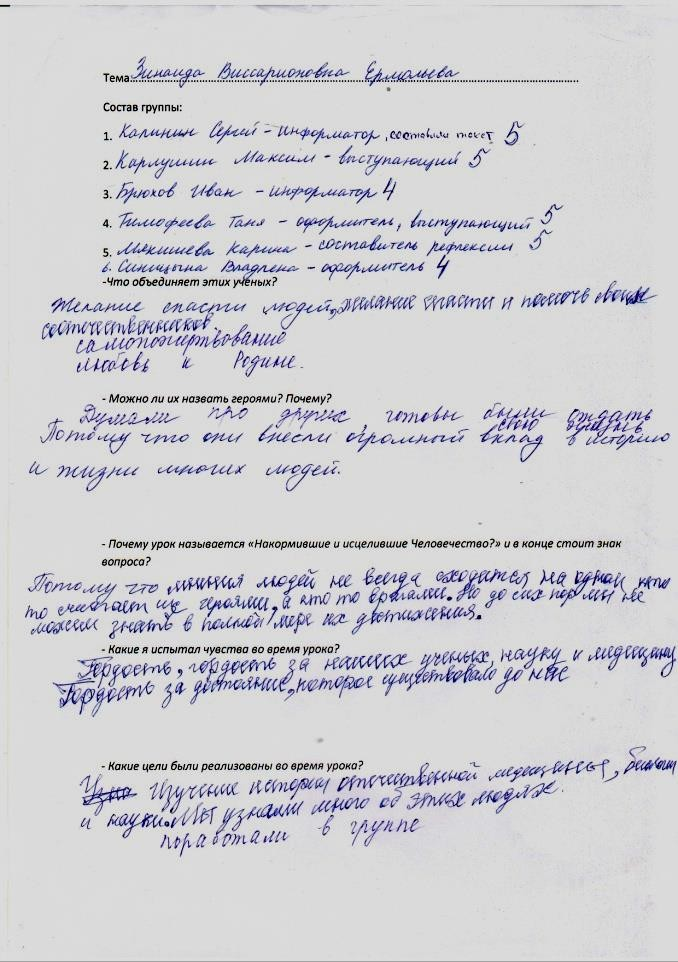 Тема: Зинаида Виссарионовна Ермольева
Состав группы:
1. Калинин Сергей – информатор, составили текст 5
2. Карлушин Максим – выступающий 5
3. Брюхов Иван – информатор 4
4. Тимофеева Таня – оформитель, выступающий 5
5. Мякишева Карина – составитель рефлексии 5
6. Синицына Владлена – оформитель 4
-Что объединяет этих ученых?
Желание спасти людей, желание спасти и помочь своим
соотечественников.
самопожертвование
любовь к Родине.
- Можно ли их назвать героями? Почему?
Думали про других, готовы были отдать
свою жизнь
Потому что они внесли огромный вклад в историю
и жизни многих людей.
- Почему урок называется «Накормившие и исцелившие Человечество?» и в конце стоит знак
вопроса?
Потому что мнения людей не всегда сходятся на одном, кто
то считает их героями, а кто то врагами. Но до сих пор мы не
можем знать в полной мере их достижения.
- Какие я испытал чувства во время урока?
Гордость, гордость за наших ученых, науку и медецину
Гордость за достояние, которое существовало до нас
- Какие цели были реализованы во время урока?
Изучение истории отечественной медецины,
и науки. Мы узнали много об этих людях.
поработали в группе